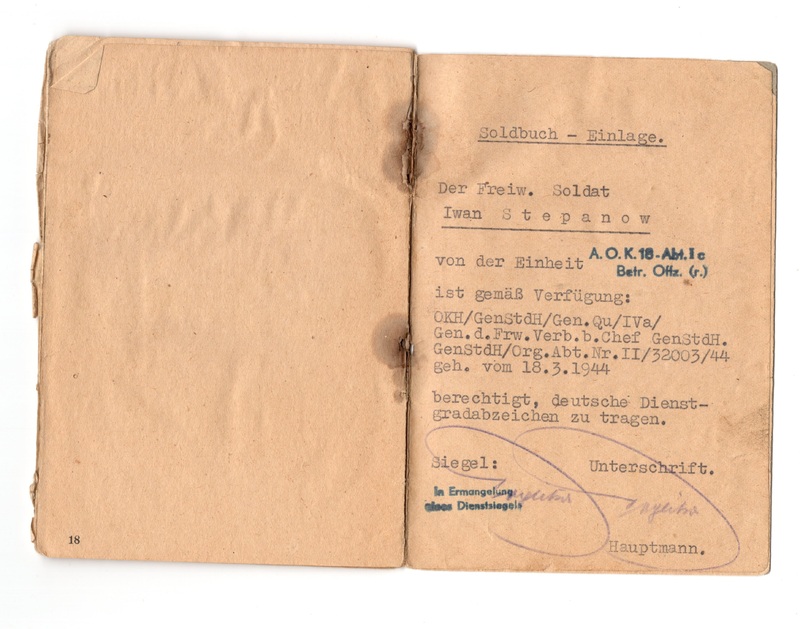 18
Soldbuch - Einlage.
Der Freiw. Soldat
Iwan Stepanow
von der Einheit A.O.K. 18-Abt. Ic
Betr. Offz. (r.)
ist gemäß Verfügung:
OKH/GenStdH/Gen.Qu/IVa/
Gen.d.Frw.Verb.b.Chef GenStdH.
GenStdH/Org.Abt.Nr.II/32003/44
geh. vom 18.3.1944
berechtigt, deutsche Dienst-
gradabzeichen zu tragen.
Siegel: Unterschrift.
In Ermangelung
eines Dienstsiegels
Hauptmann.